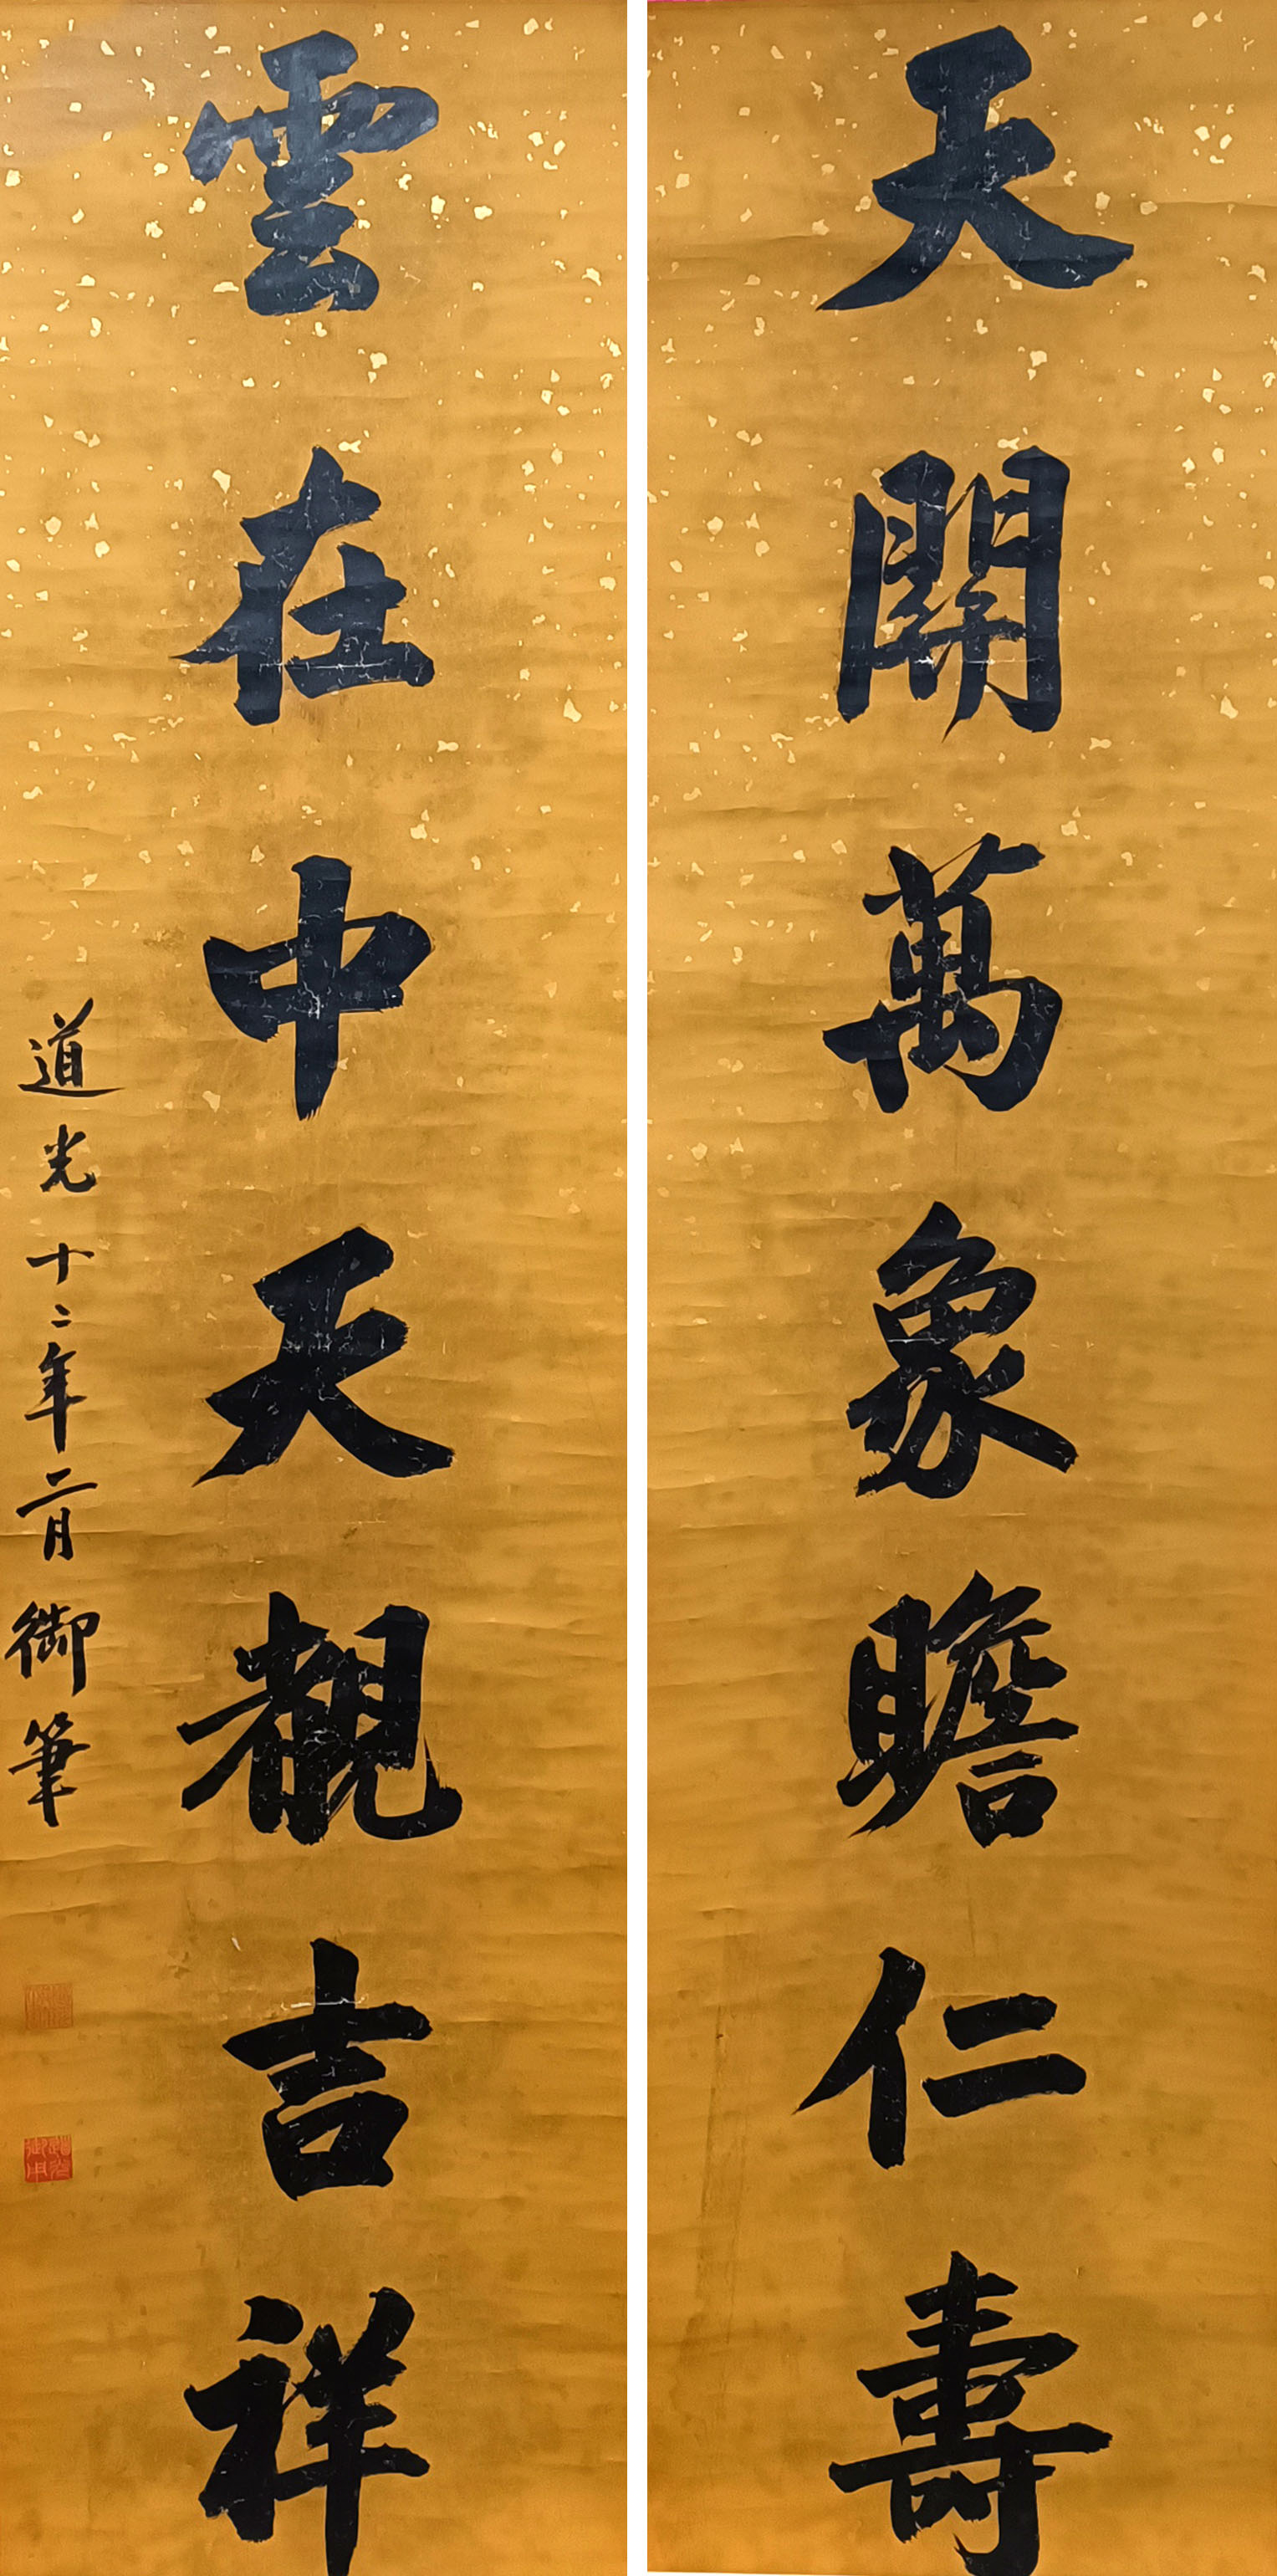 天開萬象瞻仁壽
雲在中天覩吉祥
道光十二年二月御筆